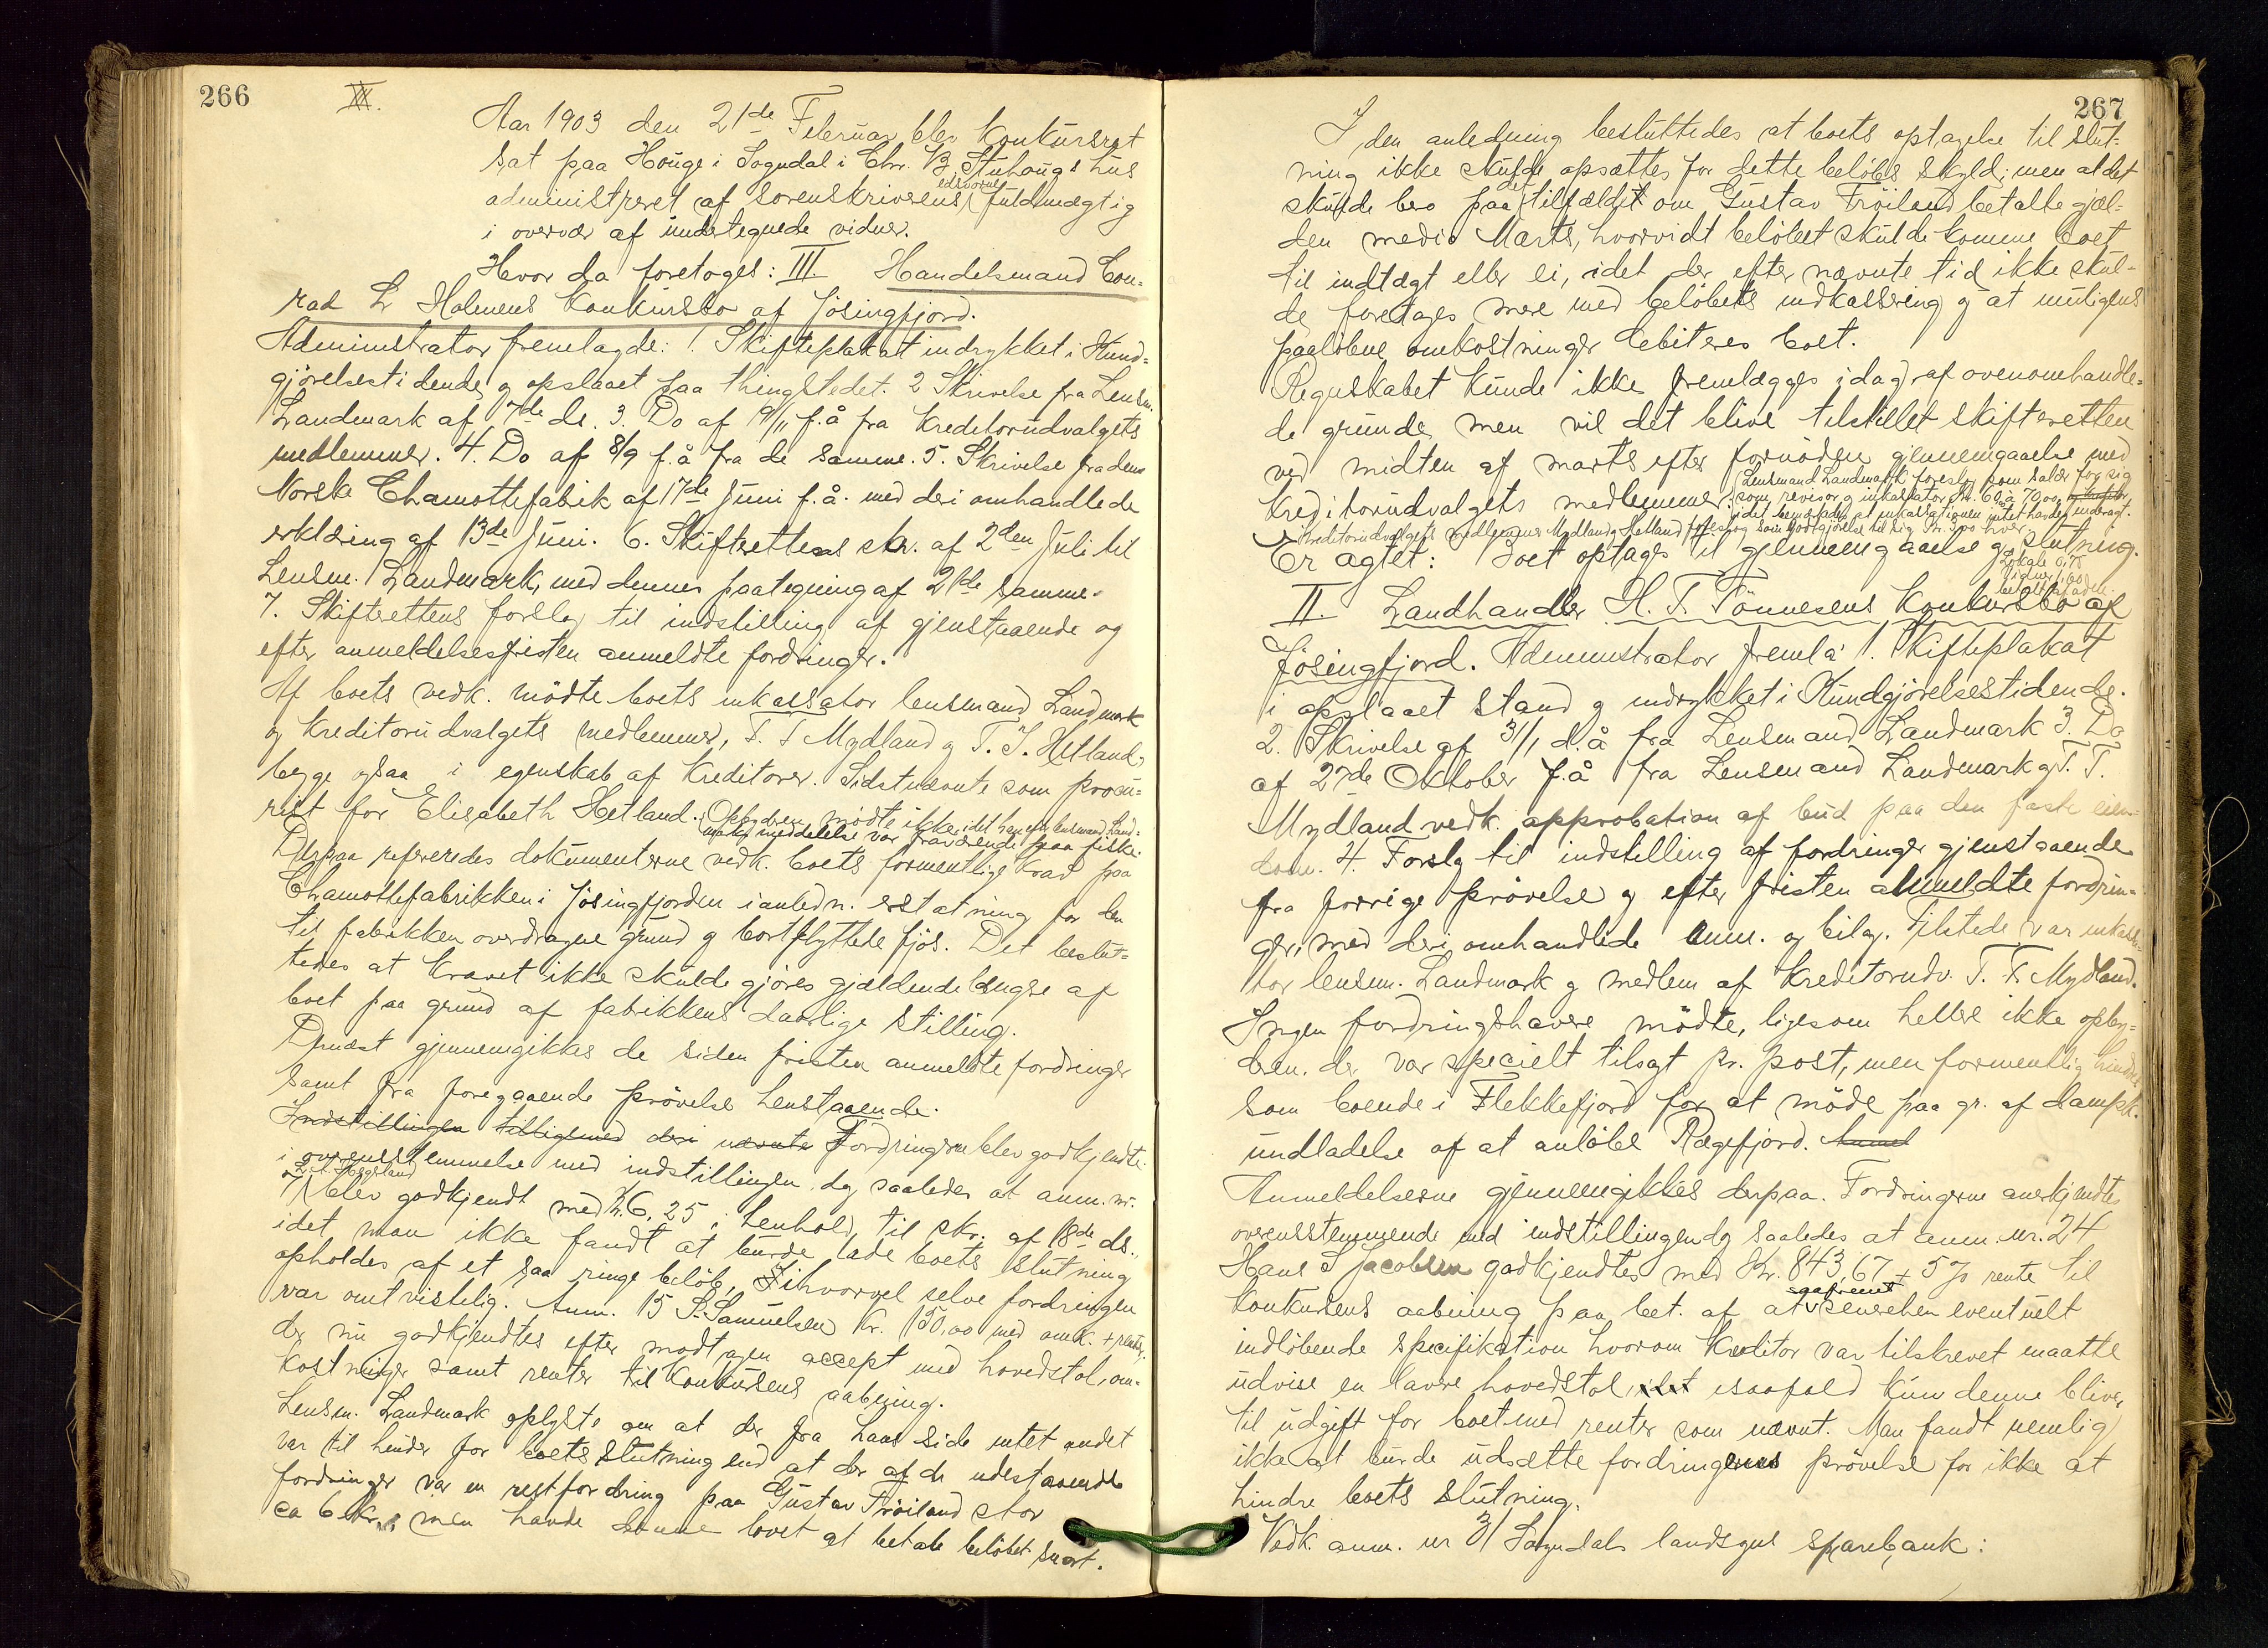 266
III.
Aar 1903 den 21de Februar blev Konkursret
sat paa Houge i Sogndal i Chr. B. Stuhaugs hus
administreret af sorenskriverens edsvorne fuldmægtig
i overvær af undertegnede vidner.
Hvor da foretoges: III. Handelsmand Con-
rad L Holmens Konkursbo af Jösingfjord.
Administrator fremlagde: 1. Skifteplakat indrykket i Kund-
gjörelsestidende og opslaaet paa thingstedet. 2 Skrivelse fra Lensm.
Landmark af 7de ds. 3. Do af 9/11 f.å fra Kreditorudvalgets
medlemmer. 4. Do af 8/9 f.å fra de samme. 5. Skrivelse fra den
Norske Chamottefabrik af 17de Juni f.å. med deri omhandlede
erklæring af 13de Juni. 6. Skifterettens skr. af 2den Juli til
Lensm. Landmark, med dennes paategning af 21de samme.
7. Skifterettens forslag til indstilling af gjenstaaende og
efter anmeldelsesfristen anmeldte fordringer.
Af boets vedk. mödte boets inkassator lensmand Landmark
og Kreditorudvalgets medlemmer, T. T Mydland og T. J. Hetland,
begge ogsaa i egenskab af Kreditorer. Sidstnævnte som procu-
rist for Elisabeth Hetland. Opbyderen mödte ikke idet han efter lensmand Land-
marks meddelelse var fraværende paa fiske.
Derpaa refereredes dokumenterne vedk. boets formentlige Krav paa
Chamottefabrikken i Jösingfjorden i anledn. erstatning for den
til fabrikken overdragne grund og bortflyttede fjös. Det beslut-
tedes at kravet ikke skulde gjöres gjældende længere af
boet paa grund af fabrikkens daarlige stilling.
Dernæst gjennemgikkes de siden fristen anmeldte fordringer
samt fra foregaaende prövelse henstaaende.
Indstillingen tilligemed deri nævnte Fordringerne blev godkjendte
i overensstemmelse med indstillingen dog saaledes at anm. nr.
7 L. T. Hegeland blev godkjendt med Kr. 6,25 i henhold til skr. af 18de ds.,
idet man ikke fandt at burde lade boets slutning
opholdes af et saa ringe belöb, hvorvel selve fordringen
var omtvistelig. Anm. 15 S. Samuelsen Kr. 150,00 med omk. + renter,
der nu godkjendtes efter modtagen accept med hovedstol, om-
kostninger samt renter til Konkursens aabning.
Lensm. Landmark oplyste om at der fra hans side intet andet
var til hinder for boets slutning end at der af de udestaaende
fordringer var en restfordring paa Gustav Fröiland stor
ca 6 Kr., men havde denne lovet at betale belöbet snart.
267
I den anledning besluttedes at boets optagelse til slut-
ning ikke skulde opsættes for dette belöbs skyld; men at det
skulde bero paa det tilfældet om Gustav Fröiland betalte gjæl-
den medio Marts, hvorvidt belöbet skulde komme boet
til indtægt eller ei, idet der efter nævnte tid ikke skul-
de foretages mere med belöbets indkassering og at muligens
paalöbne omkostninger debiteres boet.
Regnskabet kunde ikke fremlægges idag af ovenomhandle-
de grunde, men vil det blive tilstillet skifteretten
ved midten af marts efter fornöden gjennemgaaelse med
Kreditorudvalgets medlemmer. Lensmand Landmark foreslog som salær for sig
som revisor og inkassator Kr. 60 à 70,00,
idet bemærkedes at inkassationen intet havde indbragt.
Kreditorudvalgets medlemmer Mydland og Hetland foreslog som godtgjörelse til sig Kr. 3,00 hver.
Er agtet: Boet optages til gjennemgaaelse og slutning.
Lokale 0,75
Vidner 1,60
II. Landhandler H. T. Tönnesens Konkursbo af
Jösingfjord. Administrator fremla' 1. Skifteplakat
i opslaaet stand og indrykket i Kundgjörelsestidende.
2. Skrivelse af 31/1 d.å fra Lensmand Landmark 3. Do
af 27de Oktober f.å fra Lensmand Landmark og T. T.
Mydland vedk. approbation af bud paa den faste eien-
dom. 4. Forslag til indstilling af fordringer gjenstaaende
fra forrige prövelse og efter fristen anmeldte fordrin-
ger, med deri omhandlede anm. og bilag. Tilstede var inkassa-
tor lensm. Landmark og medlem af Kreditorudv. T. T. Mydland.
Ingen fordringshavere mödte, ligesom heller ikke opby-
deren. der var specielt tilsagt pr. post, men formentlig hindret
som boende i Flekkefjord for at möde paa gr. af dampsk.
undladelse af at anlöbe Rægefjord.
Anmeldelserne gjennemgikkes derpaa. Fordringerne anerkjendtes
overensstemmende med indstillingen dog saaledes at anm. nr. 24
Hans S Jacobsen godkjendtes med Kr. 843,67 + 5 % rente til
Konkursens aabning paa bet. af at saafremt senere hen eventuelt
indlöbende specifikation hvorom Kreditor var tilskrevet maatte
udvise en lavere hovedstol, idet isaafald kun denne bliver
til udgift for boet med renter som nævnt. Man fandt nemlig
ikke at burde udsætte fordringens prövelse for ikke at
hindre boets slutning.
Vedk. anm. nr 31 Sogndals landsogns sparebank: